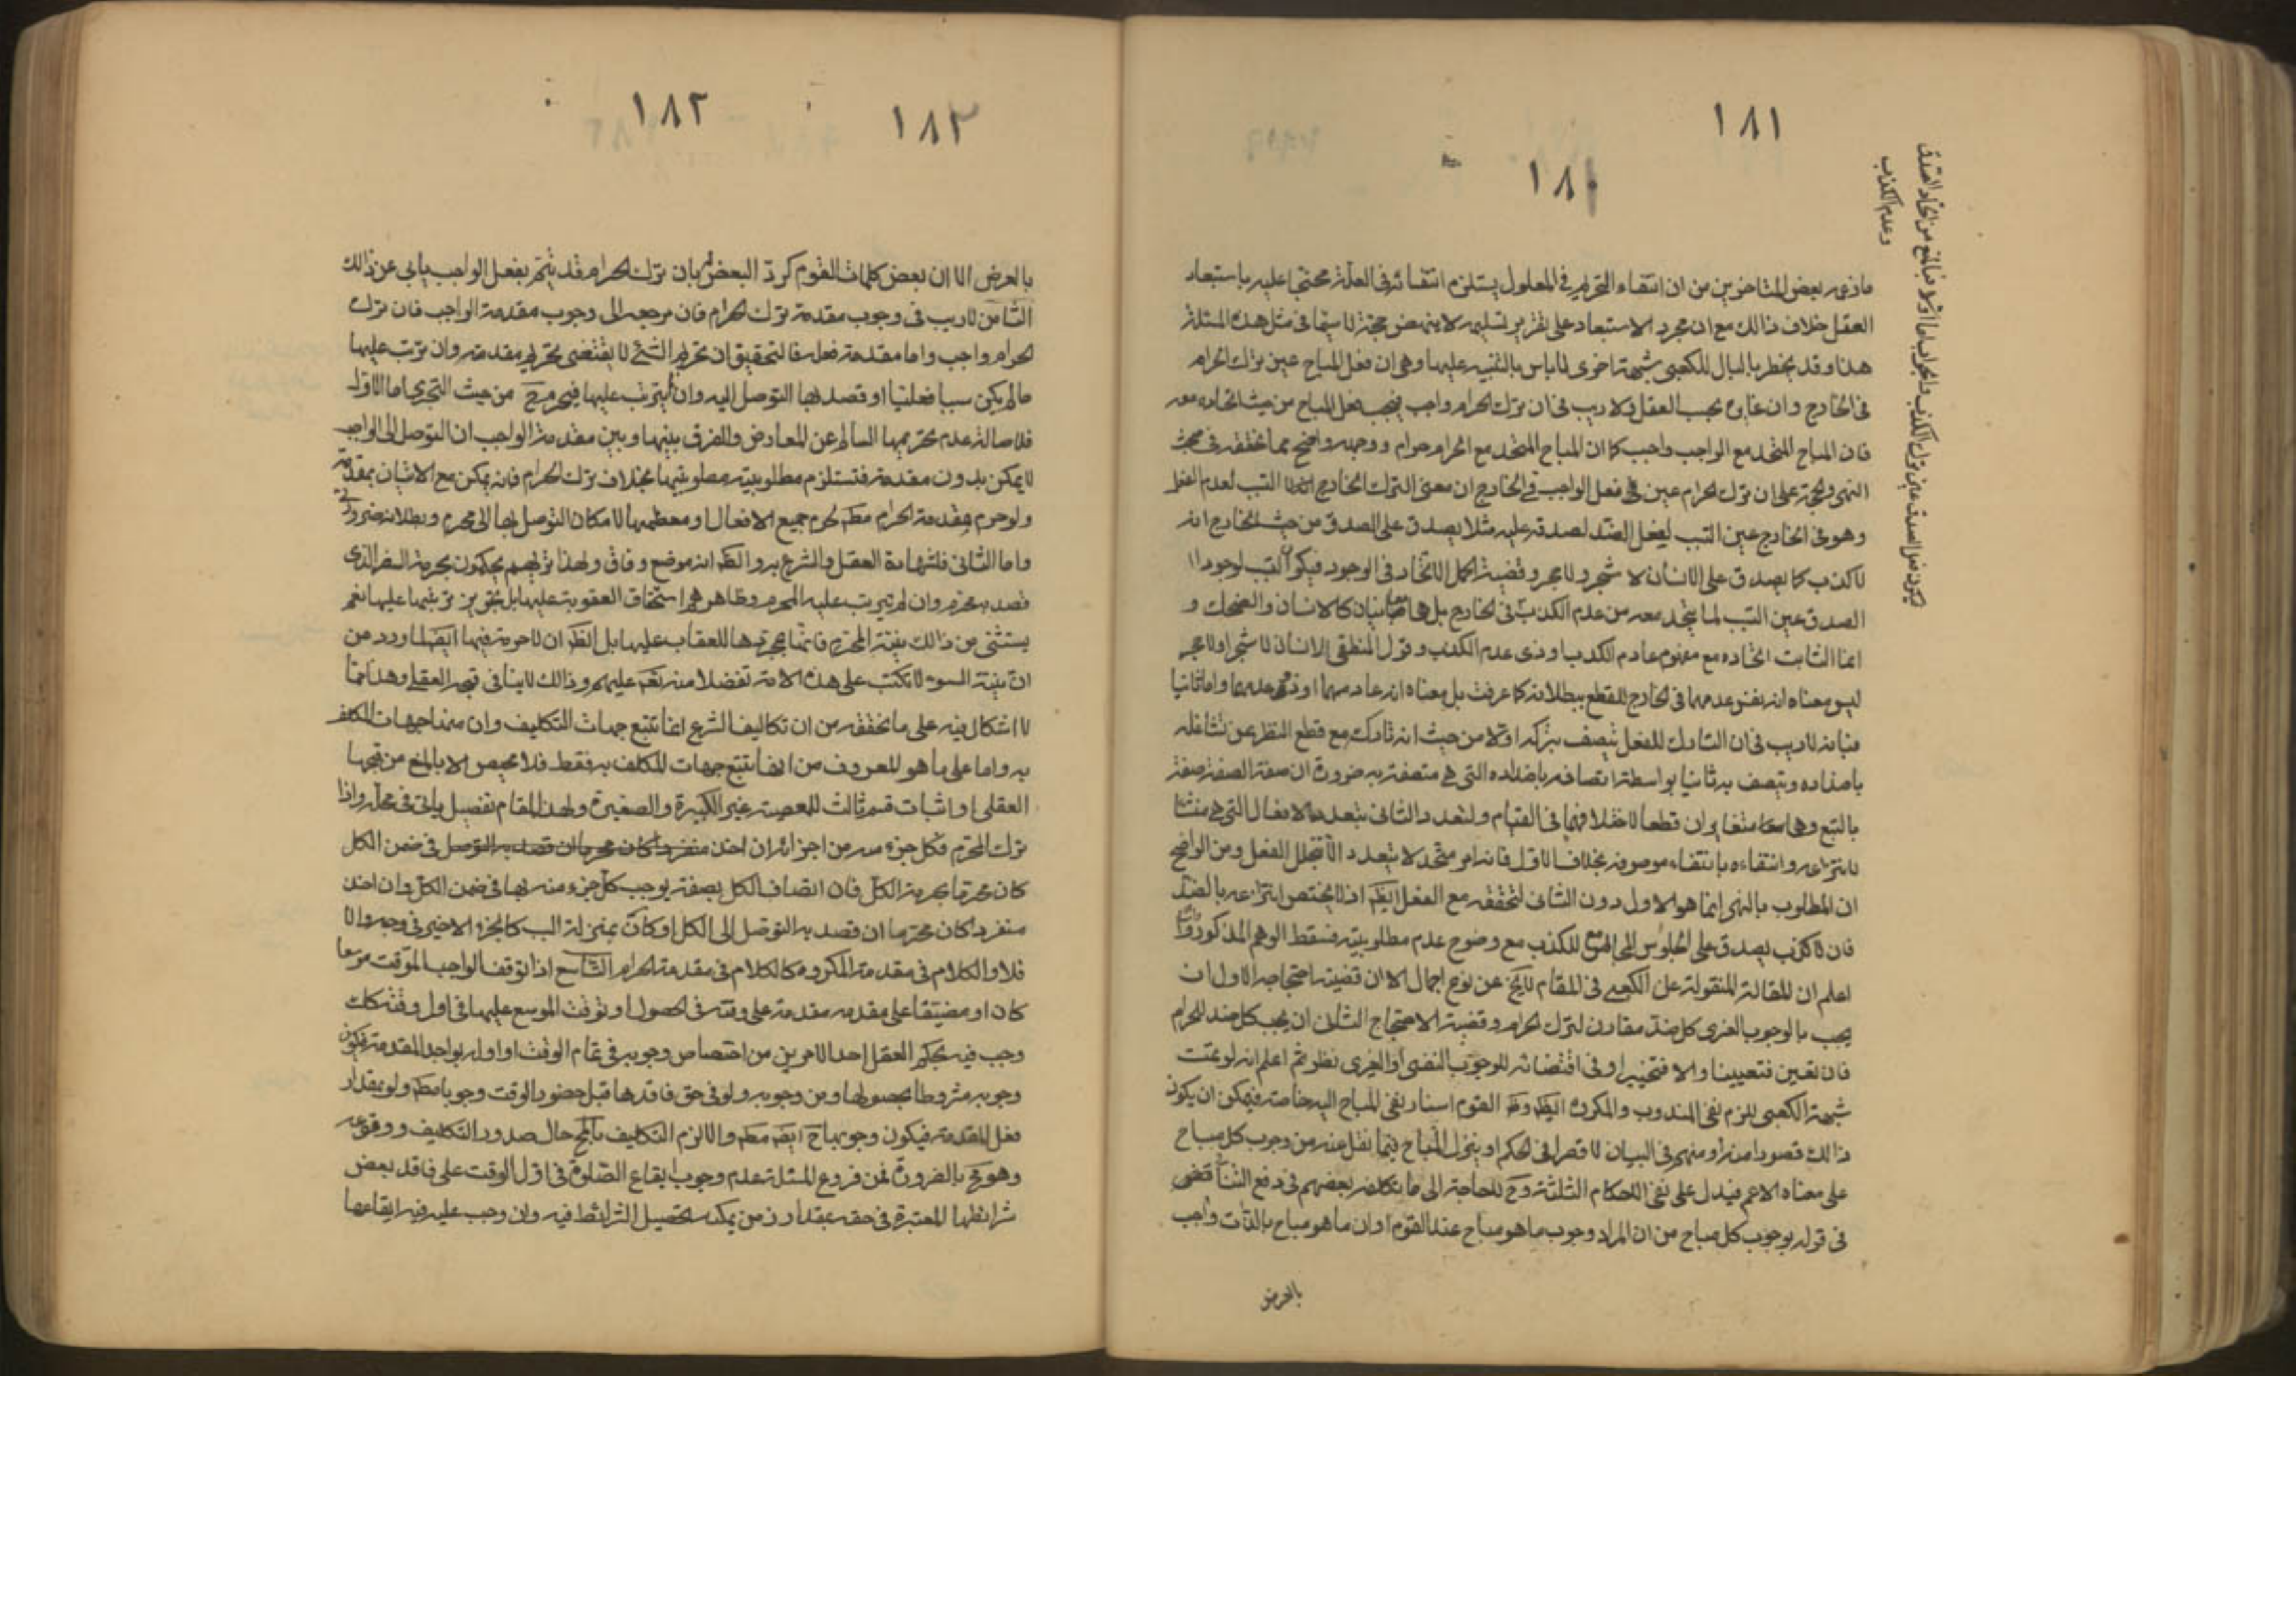 ١٨١
١٨١
ليكون نفس الصدق عين ترك الكذب والجواب اما اولا فبالمنع من اتحاد الصدق
وعدم الكذب
ما زعمه بعض المتاخرين من ان انتفاء التحريم في المعلول يستلزم انتفائه في العلة محتجا عليه باستبعاد
العقل خلاف ذالك مع ان مجرد الاستبعاد على تقدير تسليمه لا ينهض حجة لا سيما في مثل هذه المسئلة
هذا وقد يخطر بالبال للكعبي شبهة اخرى لا باس بالتنبيه عليها وهي ان فعل المباح عين ترك الحرام
في الخارج وان غايره بحسب العقل ولا ريب في ان ترك الحرام واجب فيجب فعل المباح من حيث اتحاده معه
فان المباح المتحد مع الواجب واجب كما ان المباح المتحد مع الحرام حرام ووجهه واضح مما نحققه في مبحث
النهي والحجة على ان ترك الحرام عين فعل الواجب في الخارج ان معنى الترك الخارج
وهو في الخارج عين التلبس بفعل الضد لصدقه عليه مثلا يصدق على الصدق من حيث الخارج انه
لا كذب كما يصدق على الانسان لا شجر ولا حجر وقضية الحمل الاتحاد في الوجود فيكون
الصدق عين التلبس لما يتحد معه من عدم الكذب في الخارج بل هما متباينان كالانسان والضحك و
انما الثابت اتحاده مع مفهوم عادم الكذب او ذي عدم الكذب وقول المنطقي الانسان لا شجر او لا حجر
ليس معناه انه نفس عدمهما في الخارج للقطع ببطلانه كما عرفت بل معناه انه عادمهما او ذو عدمهما واما ثانيا
فبانه لا ريب في ان التارك للفعل يتصف بتركه اولا من حيث انه تارك مع قطع النظر عن تشاغله
باضداده ويتصف به ثانيا بواسطة اتصافه باضداده التي هي متصفة به ضرورة ان صفة الصفة صفة
بالتبع وهما متغايران قطعا لاختلافهما في القيام ولتعدد الثاني بتعدد الافعال التي هي منشا
لانتزاعه وانتفاءه بانتفاء موصوفه بخلاف الاول فانه امر متحد لا يتعدد الا بتخلل الفعل ومن الواضح
ان المطلوب بالنهي انما هو الاول دون الثاني لتحققه مع الفعل ايضا اذ لا يختص انتزاعه بالضد
فان لا كذب يصدق على الجلوس للكذب مع وضوح عدم مطلوبيته فسقط الوهم المذكور
اعلم ان المقالة المنقولة عن الكعبي في المقام لا يخ عن نوع اجمال الا ان قضية احتجاجه الاول ان
يجب بالوجوب الغيري كل ضد مقارن لترك الحرام وقضية الاحتجاج الثاني ان يجب كل ضد للحرام
فان تعين فتعيينا والا فتخييرا وفي اقتضائه للوجوب النفسي او الغيري نظر ثم اعلم انه لو تمت
شبهة الكعبي للزم نفي المندوب والمكروه ايضا وظ القوم اسناد نفي المباح اليه خاصة فيمكن ان يكون
ذالك قصورا منه او منهم في البيان لا قصرا في الحكم او ينزل المباح فيما نقل عنه من وجوب كل مباح
على معناه الاعم فيدل على نفي الاحكام الثلثة وح للحاجة الى ما تكلفه بعضهم في دفع التناقض
في قوله بوجوب كل مباح من ان المراد وجوب ما هو مباح عند القوم او ان ما هو مباح بالذات واجب
بالعرض
١٨٢
١٨٢
بالعرض الا ان بعض كلمات القوم كرد البعض بان ترك الحرام قد يتم بفعل الواجب يابى عن ذالك
الثامن لا ريب في وجوب مقدمة ترك الحرام فان مرجعه الى وجوب مقدمة الواجب فان ترك
الحرام واجب واما مقدمة فعله فالتحقيق ان تحريم الشئ لا يقتضي تحريم مقدمته وان ترتب عليها
ما لم يكن سببا فعليا او قصد بها التوصل اليه وان لم يترتب عليها فيحرم ح من حيث التجري اما الاول
فلاصالة عدم تحريمها السالم عن المعارض والفرق بينها وبين مقدمة الواجب ان التوصل الى الواجب
لا يمكن بدون مقدمة فتستلزم مطلوبيته مطلوبيتها بخلاف ترك الحرام فانه يمكن مع الاتيان بمقدمة
ولو حرم مقدمة الحرام مط لحرم جميع الافعال او معظمها لامكان التوصل بها الى محرم وبطلانه ضروري
واما الثاني فلشهادة العقل والشرع به والظ انه موضع وفاق ولهذا تريهم يحكمون بحرمة السفر الذي
قصد به محرم وان لم يترتب عليه المحرم وظاهرهم استحقاق العقوبة عليها بل تحريم ترتبها عليها نعم
يستثنى من ذالك نية المحرم فانها بمجردها لا عقاب عليها بل الظ ان لا حرمة فيها ايضا لما ورد من
ان نية السوء لا تكتب على هذه الامة تفضلا منه تعم عليهم وذالك لا ينافي قبحه العقلي وهذا مما
لا اشكال فيه على ما نحققه من ان تكاليف الشرع انما تتبع جهات التكليف وان منها جهات المكلف
به واما على ما هو المعروف من انها تتبع جهات المكلف به فقط فلا محيص الا بالمنع من قبحها
العقلي او اثبات قسم ثالث للمعصية غير الكبيرة والصغيرة ولهذا المقام تفصيل ياتي في محله واذا
ترك المحرم فكل جزء من اجزائه ان اخذ في ضمن الكل
كان محرما بحرمة الكل فان اتصاف الكل بصفة يوجب كل جزء منه بها في ضمن الكل وان اخذ
منفردا كان محرما ان قصد به التوصل الى الكل او كان بمنزلة السبب كالجزء الاخير في وجه والا
فلا والكلام في مقدمة المكروه كالكلام في مقدمة الحرام التاسع اذا توقف الواجب الموقت موسعا
كان او مضيقا على مقدمة مقدمة على وقته في الحصول او توقف الموسع عليها في اول وقته كك
وجب فيه بحكم العقل احد الامرين من اختصاص وجوبه في تمام الوقت او اوله بواجد المقدمة فيكون
وجوبه مشروطا بحصولها ومن وجوبه ولو في حق فاقدها قبل حضور الوقت وجوبا مط ولو بمقدار
فعل المقدمة فيكون وجوبها ح ايضا مط والا لزم التكليف بالمح حال صدور التكليف ووقوعه
وهو مح بالضرورة فمن فروع المسئلة عدم وجوب ايقاع الصلوة في اول الوقت على فاقد بعض
شرائطها المعتبرة في حقه بمقدار زمن يمكنه تحصيل الشرائط فيه وان وجب عليه فيه ايقاعها